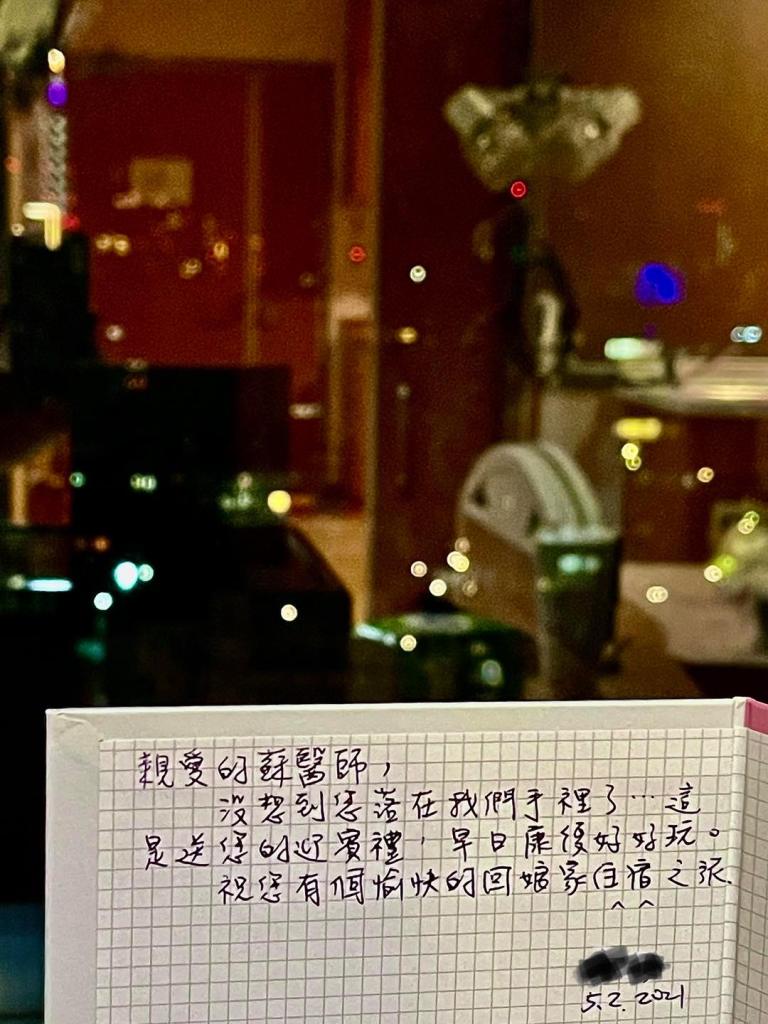 親愛的蘇醫師，
沒想到您落在我們手裡了…這
是送您的迎賓禮，早日康復好好玩。
祝您有個愉快的回娘家住宿之旅.
^ ^
5.2.2021